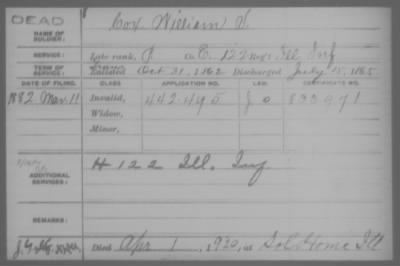 DEAD
NAME OF SOLDIER: Cox William
SERVICE: Late rank, P. Co. C. 122 Reg't Ill Inf
TERM OF SERVICE: Enlisted Oct 21, 1862 Discharged July 15, 1865
DATE OF FILING. CLASS APPLICATION NO. LAW. CERTIFICATE NO.
1882 Mar. 11 Invalid, 442.495 833971
Widow,
Minor,
ADDITIONAL SERVICES: H 122 Ill. Inf
REMARKS:
Died Apr 1, 1920, at Sol Home Ill